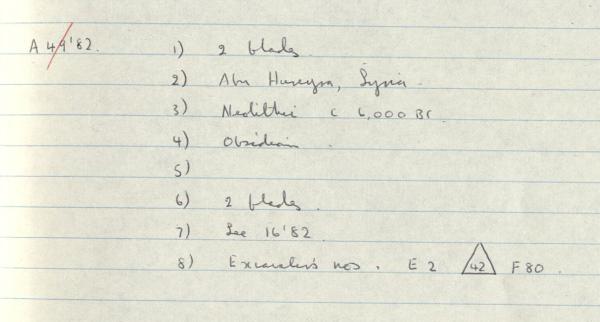 A 49'82. 1) 2 blades.
2) Abu Hureyra, Syria.
3) Neolithic c 6,000 BC
4) Obsidian.
5)
6) 2 blades.
7) See 16'82
8) Excavator's nos. E 2 42 F 80.